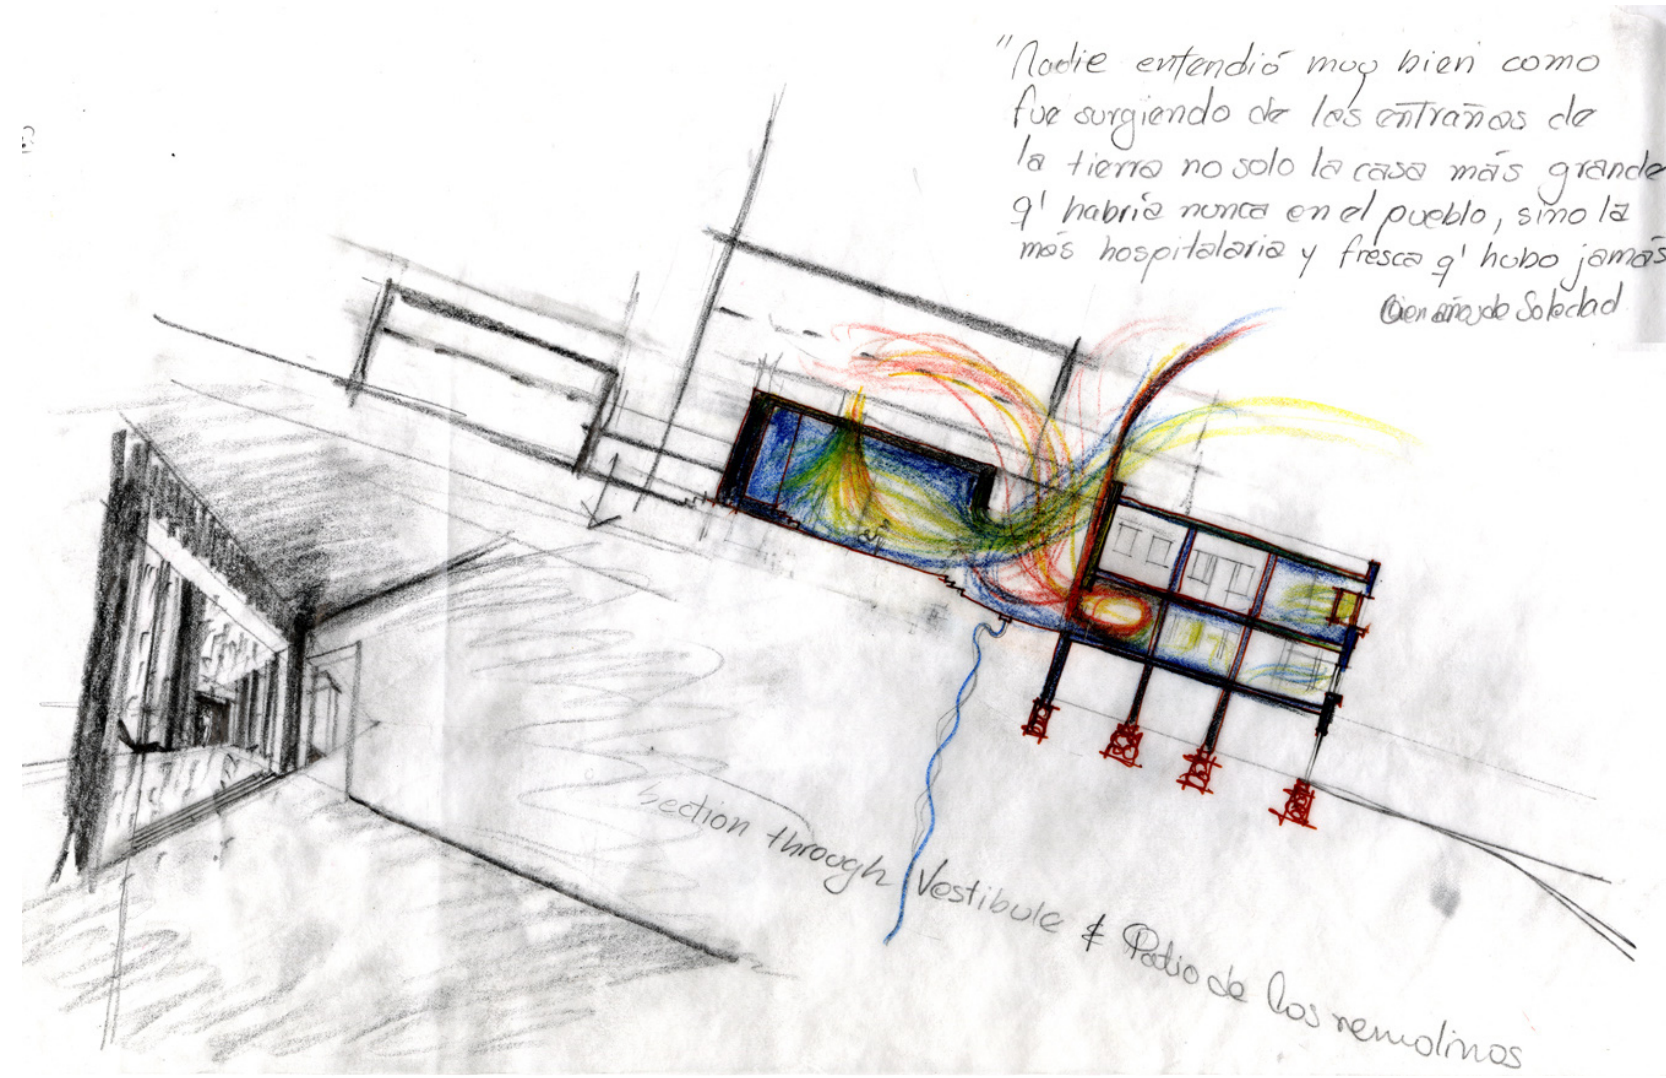 "Nadie entendió muy bien como
fue surgiendo de las entrañas de
la tierra no solo la casa más grande
q' habría nunca en el pueblo, sino la
más hospitalaria y fresca q' hubo jamás
Cien años de Soledad
Section through Vestibule & Patio de los remolinos